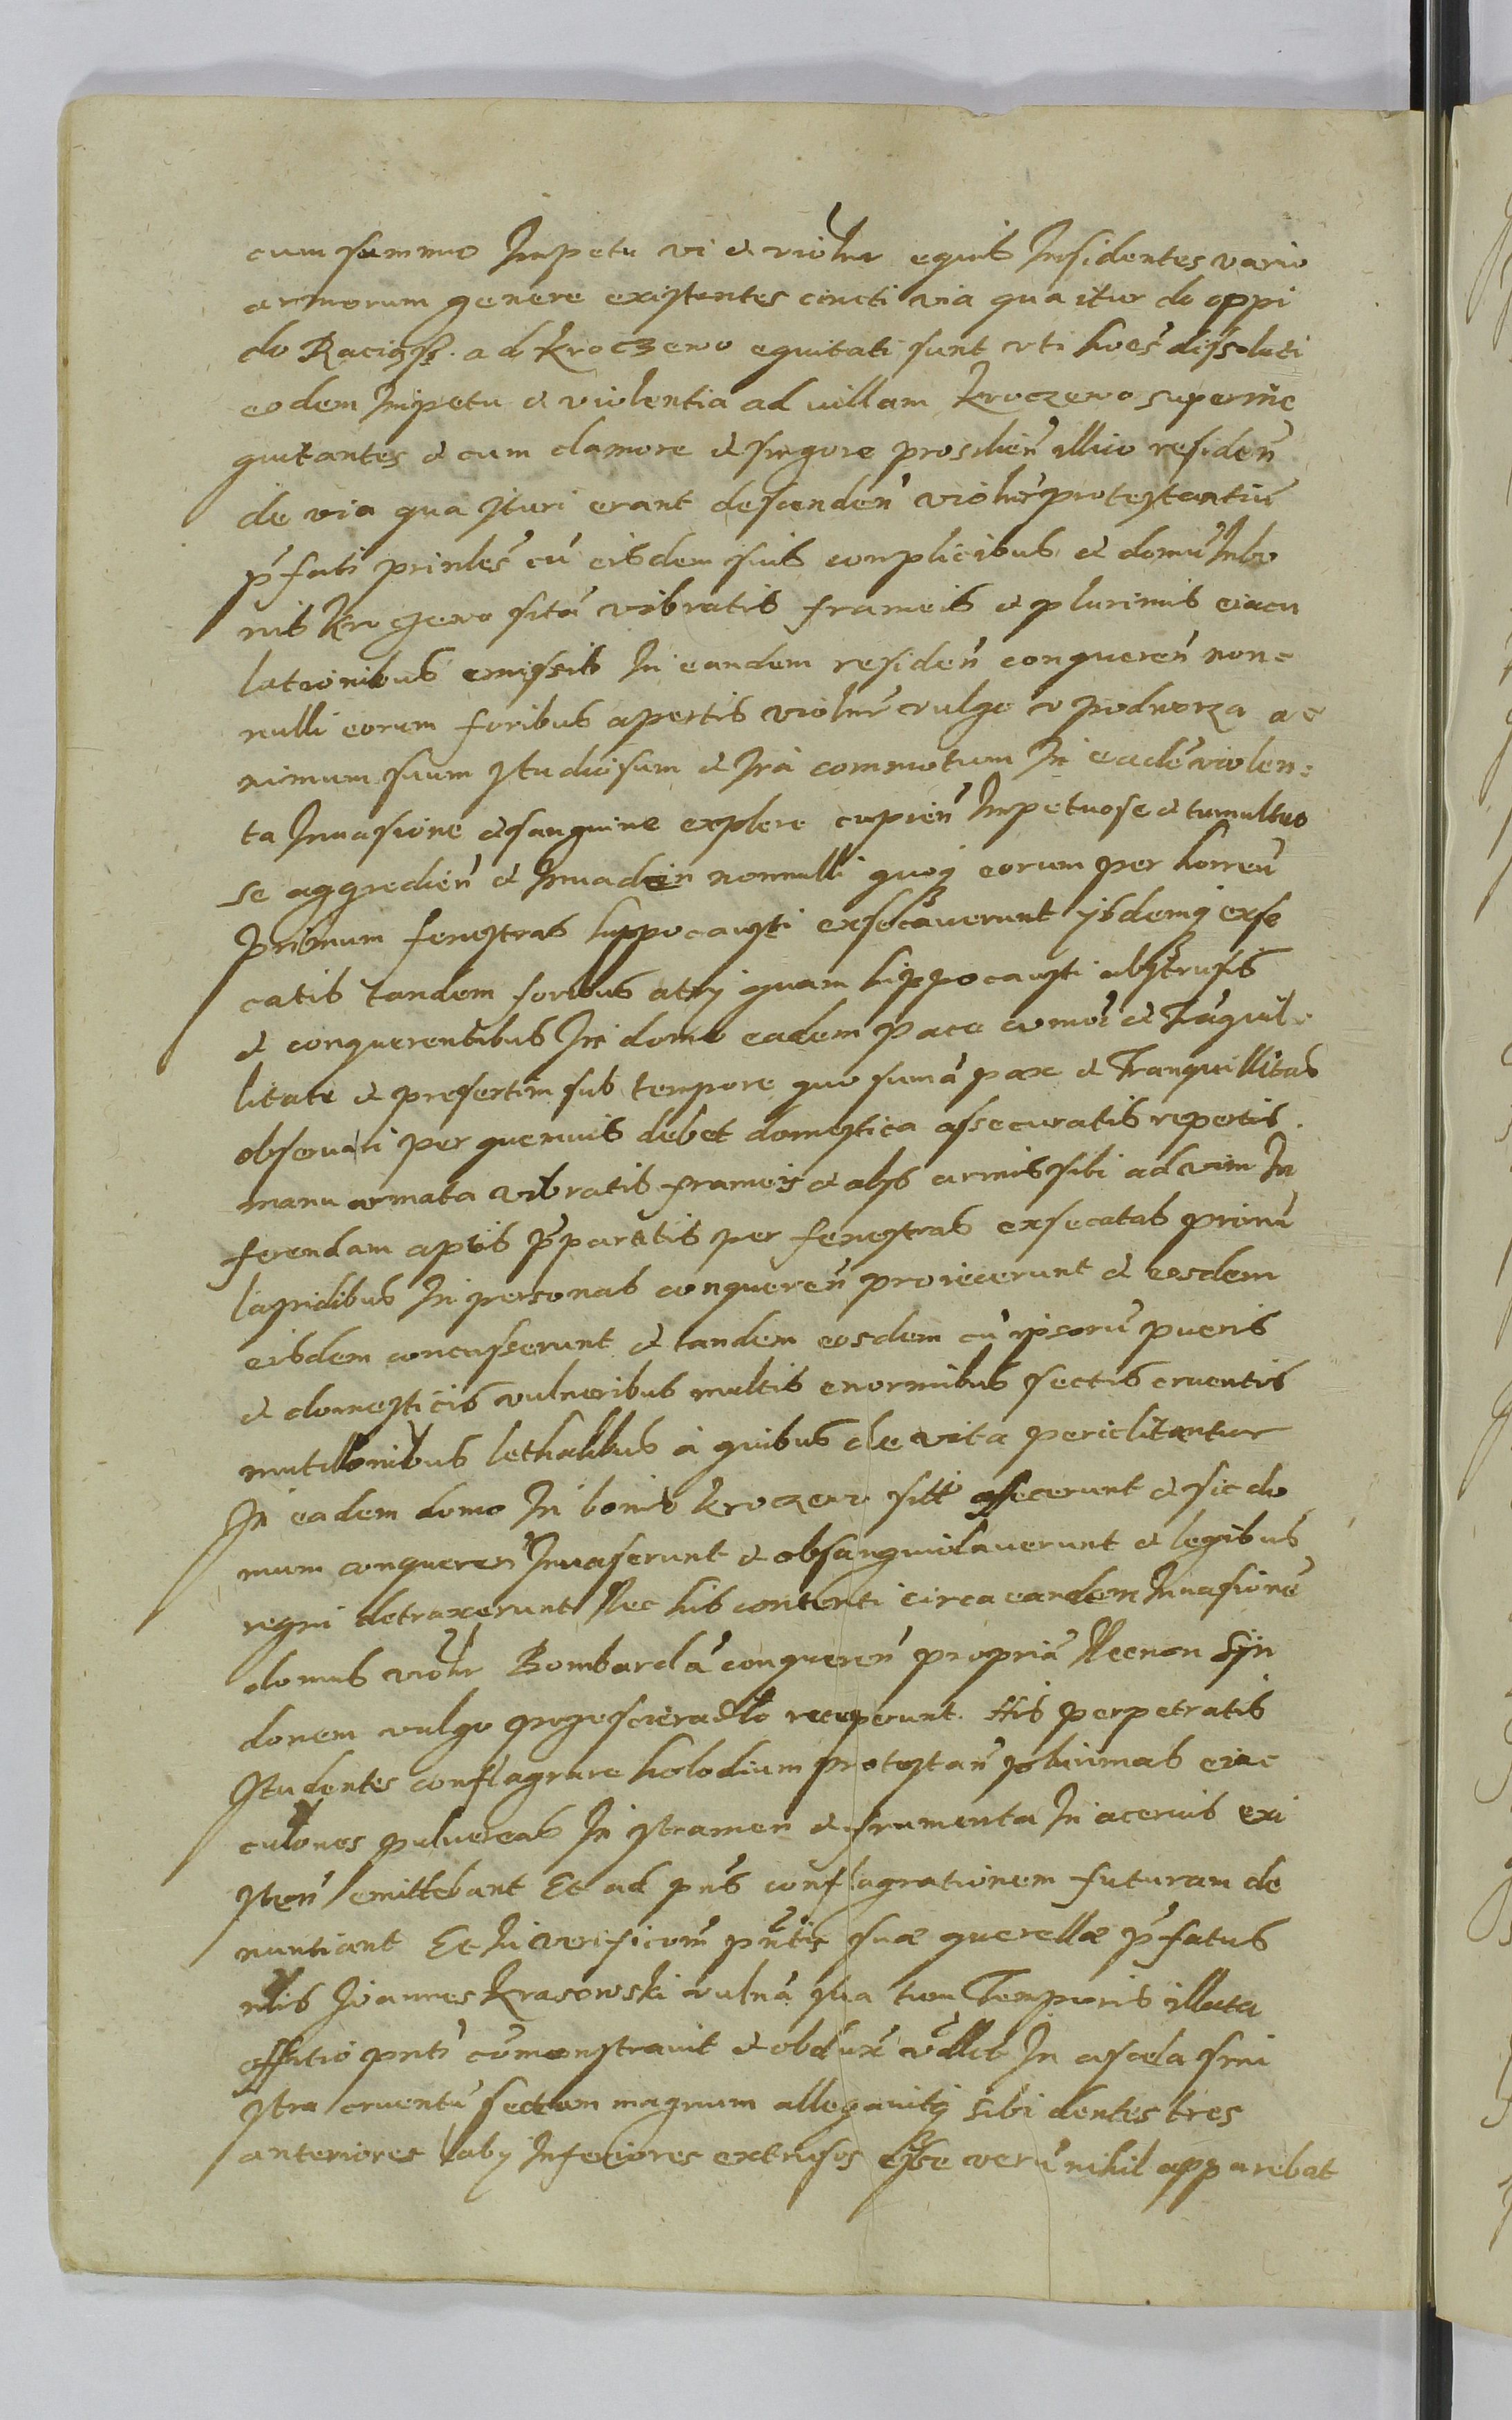 cum summo Impetu vi et violnr equis Insidentes vario
armorum genere existentes cincti via qua itur de oppi
do Raciąsz. ad Kroczewo equitati sunt uti hoes dissoluti
eodem Impetu et violentia ad villam Kroczewo superine
quitantes et cum clamore et  prosilien illico residen
de via qua Ituri erant descenden violnr protestantiu
pfati prinles cu eisdem suis complicibus et domu Inbo
nis Kroczewo sita vibratis frameis et plurimis eiacu
lationibus emissis In eandem residen conqueren non=
nulli eorum foribus apertis violnr vulgo v podworza a=
nimum suum studiosum et Ira commotum In eade violen=
ta Inuasione et sanguine explere cupien Impetuose et tumultuo
se aggredien et Inuaden nonnulli quoq eorum per horreu
primum fenestras hyppocausti exsecauerunt ijsdemq exse
catis tandem foribus atrij quam hippocausti abstrusis
et conquerentibus In domo eadem pace  et Traquil=
litate et presertim sub tempore quo suma pax et Tranquillitas
obseruari per quemuis debet domestica assecuratis repertis.
manu armata vibratis frameis et alijs armis sibi ad vim In
ferendam aptis pparatis per fenestras exsecatas primu
lapidibus In personas conqueren proiecerunt et eosdem
eisdem concusserunt et tandem eosdem cu ipsoru pueris
et domesticis vulneribus multis enormibus sectis cruentis
mutilonibus lethalibus a quibus de vita periclitantur
In eadem domo In bonis Kroczewo  affecerunt et sic do
mum conqueren Inuaserunt et obsanguilauerunt et legibus
regni detraxerunt Nec his contenti circa eandem Inuasione
domus violnr Bombarda conqueren propria Necnon Syn
donem vulgo przescieradło receperunt. His perpetratis
studentes conflagrare holodium protestan plurimas eiac
culones puluereas In stramen et frumenta In aceruis exi
sten emittebant Et ad pns conflagrationem futuram de
nuntiant Et In verificaom pntis suæ querellæ pfatus
nlis Joannes Krasowski vulna sua tum Temporis illata
offitio pnti comonstrauit et  In ascela sini
stra cruentu sectum magnum allegauitq sibi dentes tres
anteriores labij Inferiores extrusos esse veru nihil apparebat